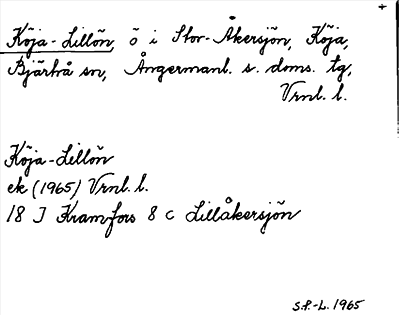 Köja-Lillön, ö i Stor-Åkersjön, Köja,
Bjärtrå sn, Ångermanl. s. doms. tg,
Vrnl. l.
Köja-Lillön
ek (1965) Vrnl. l.
18 J Kramfors 8 c Lillåkersjön
S.P.-L. 1965